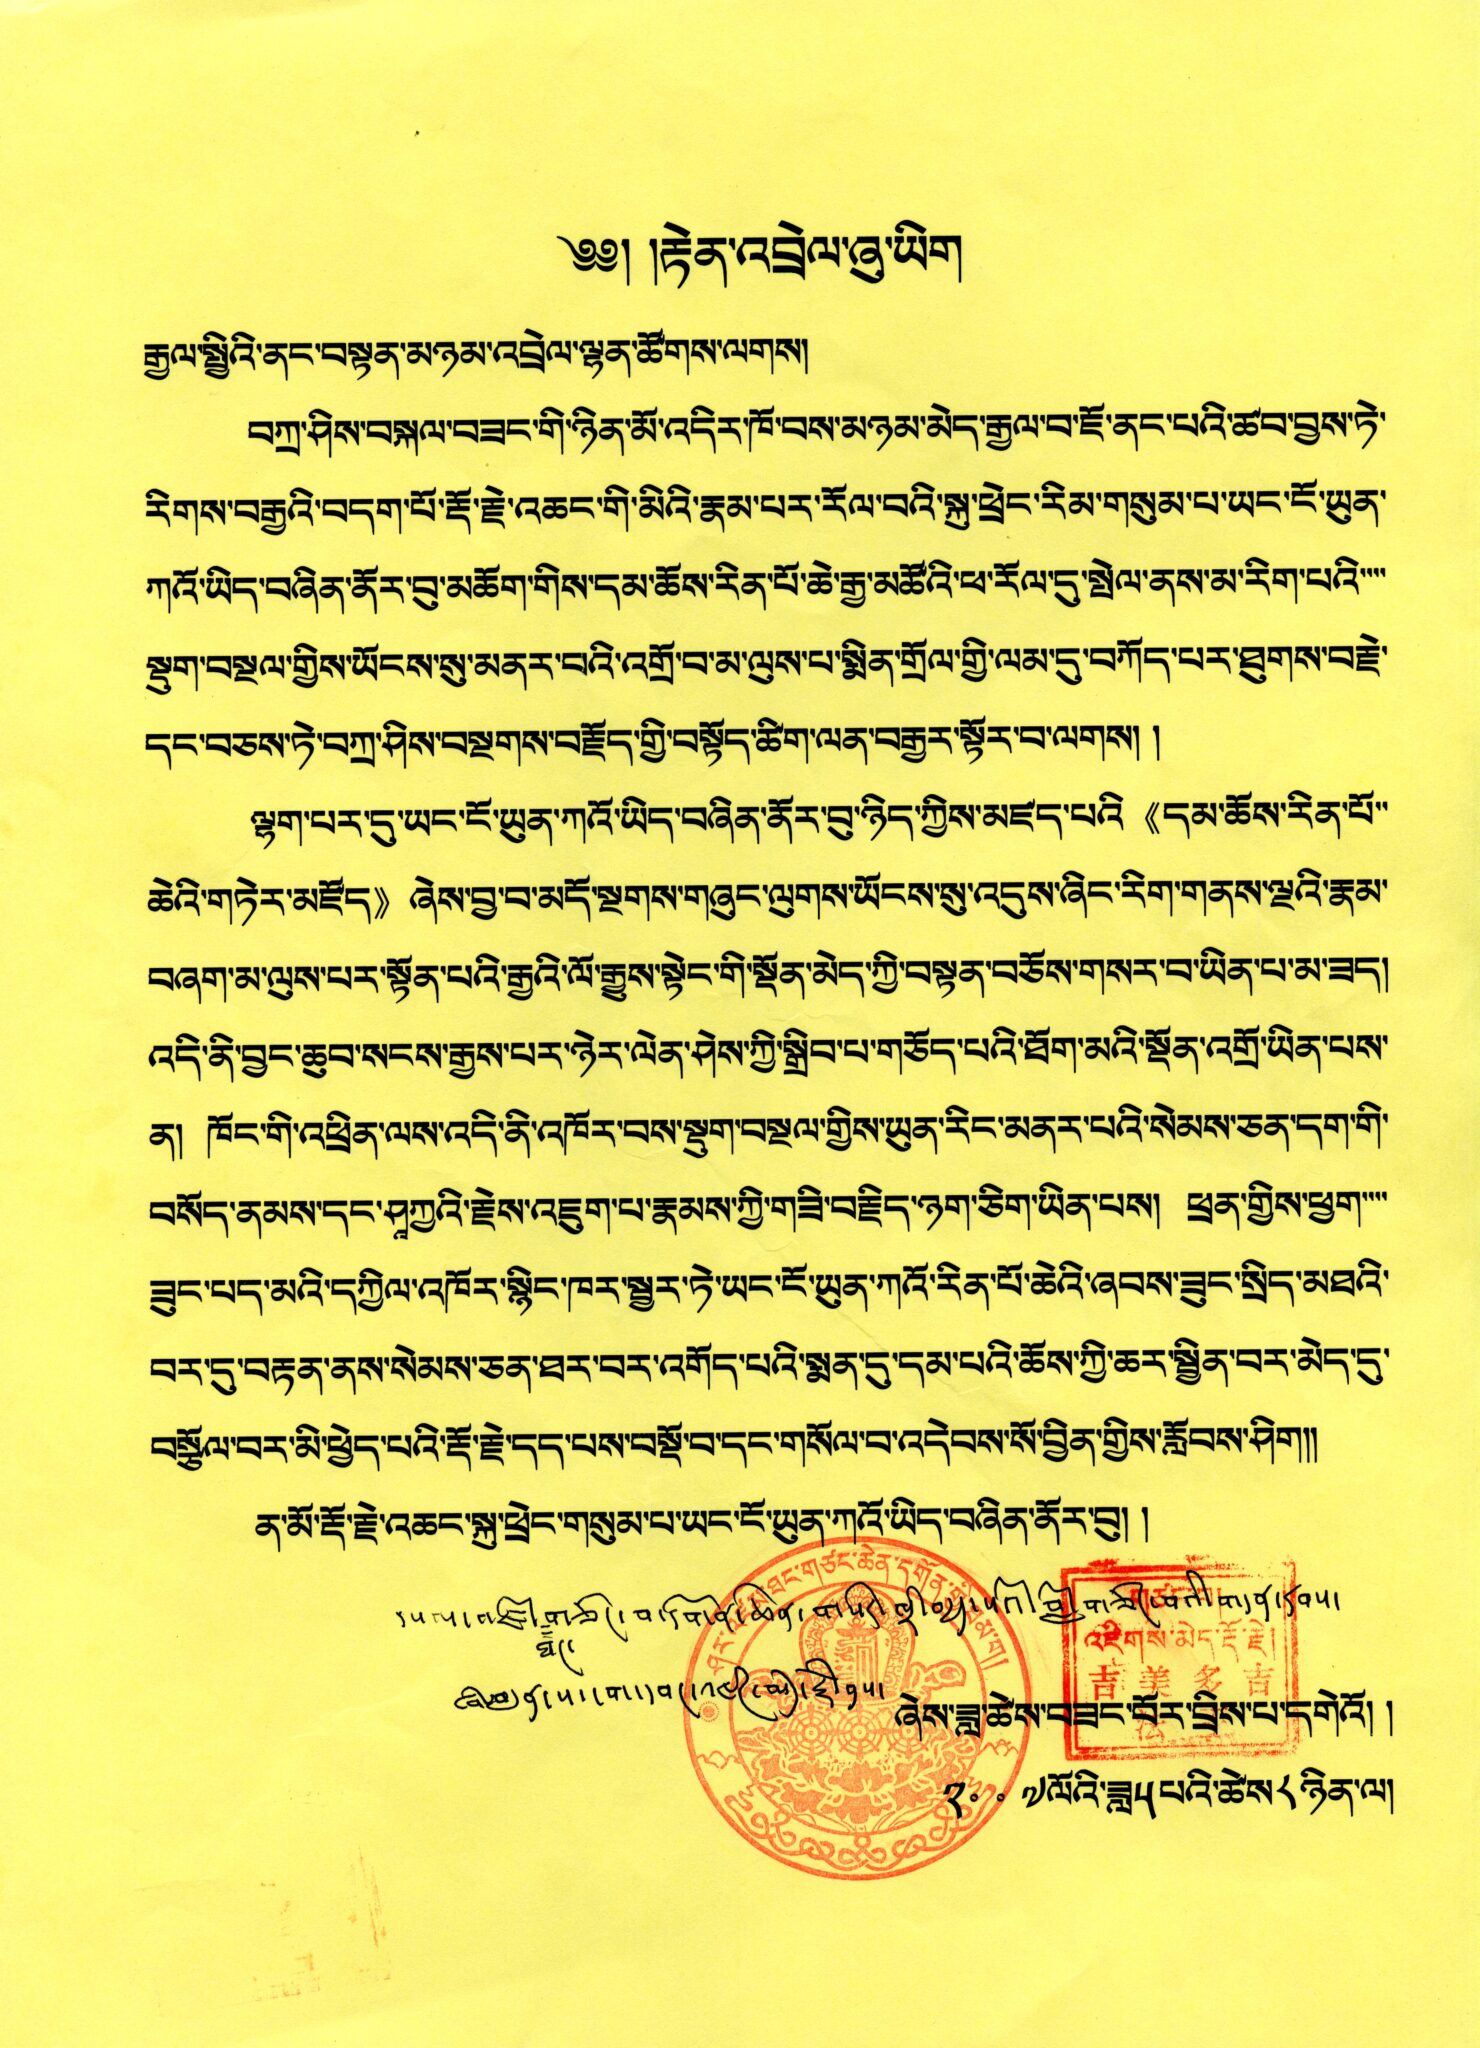 ༄༅། །རྟེན་འབྲེལ་ཞུ་ཡིག
རྒྱལ་སྤྱིའི་ནང་བསྟན་མཉམ་འབྲེལ་ལྷན་ཚོགས་ལགས།
བཀྲ་ཤིས་བསྐལ་བཟང་གི་ཉིན་མོ་འདིར་ཁོ་བས་མཉམ་མེད་རྒྱལ་བ་ཇོ་ནང་པའི་ཚབ་བྱས་ཏེ་
རིགས་བརྒྱའི་བདག་པོ་རྡོ་རྗེ་འཆང་གི་མིའི་རྣམ་པར་རོལ་བའི་སྐུ་ཕྲེང་རིམ་གསུམ་པ་ཡང་ངོ་ཡུན་
ཀའོ་ཡིད་བཞིན་ནོར་བུ་མཆོག་གིས་དམ་ཆོས་རིན་པོ་ཆེ་རྒྱ་མཚོའི་ཕ་རོལ་དུ་སྤེལ་ནས་མ་རིག་པའི་་་་
སྡུག་བསྔལ་གྱིས་ཡོངས་སུ་མནར་བའི་འགྲོ་བ་མ་ལུས་པ་སྨིན་གྲོལ་གྱི་ལམ་དུ་བཀོད་པར་ཐུགས་བརྩེ་
དང་བཅས་ཏེ་བཀྲ་ཤིས་བསྔགས་བརྗོད་གྱི་བསྟོད་ཚིག་ལན་བརྒྱར་སྟོར་བ་ལགས། །
ལྷག་པར་དུ་ཡང་ངོ་ཡུན་ཀའོ་ཡིད་བཞིན་ནོར་བུ་ཉིད་ཀྱིས་མཛད་པའི 《དམ་ཆོས་རིན་པོ་་
ཆེའི་གཏེར་མཛོད》 ཞེས་བྱ་བ་མདོ་སྔགས་གཞུང་ལུགས་ཡོངས་སུ་འདུས་ཞིང་རིག་གནས་ལྔའི་རྣམ་
བཞག་མ་ལུས་པར་སྟོན་པའི་རྒྱའི་ལོ་རྒྱུས་སྟེང་གི་སྔོན་མེད་ཀྱི་བསྟན་བཅོས་གསར་བ་ཡིན་པ་མ་ཟད།
འདི་ནི་བྱང་ཆུབ་སངས་རྒྱས་པར་ཉེར་ལེན་ཤེས་ཀྱི་སྒྲིབ་པ་གཅོད་པའི་ཐོག་མའི་སྔོན་འགྲོ་ཡིན་པས་
ན། ཁོང་གི་འཕྲིན་ལས་འདི་ནི་འཁོར་བས་སྡུག་བསྔལ་གྱིས་ཡུན་རིང་མནར་པའི་སེམས་ཅན་དག་གི་
བསོད་ནམས་དང་ཤཱཀྱའི་རྗེས་འཇུག་པ་རྣམས་ཀྱི་གཟི་བརྗིད་ཉག་ཅིག་ཡིན་པས། ཕྲན་གྱིས་ཕྱག་་་་
ཟུང་པད་མའི་དཀྱིལ་འཁོར་སྙིང་ཁར་སྦྱར་ཏེ་ཡང་ངོ་ཡུན་ཀའོ་རིན་པོ་ཆེའི་ཞབས་ཟུང་སྲིད་མཐའི་
བར་དུ་བརྟན་ནས་སེམས་ཅན་ཐར་བར་འགོད་པའི་སྨན་དུ་དམ་པའི་ཆོས་ཀྱི་ཆར་སྦྱིན་བར་མེད་དུ་
བསྩོལ་བར་མི་ཕྱེད་པའི་རྡོ་རྗེ་དད་པས་བསྔོ་བ་དང་གསོལ་བ་འདེབས་སོ་བྱིན་གྱིས་རློབས་ཤིག།།
ན་མོ་རྡོ་རྗེ་འཆང་སྐུ་ཕྲེང་གསུམ་པ་ཡང་ངོ་ཡུན་ཀའོ་ཡིད་བཞིན་ནོར་བུ། །
འཇིགས་མེད་རྡོ་རྗེ།
吉美多吉
ཞེས་ཟླ་ཚེས་བཟང་པོར་བྲིས་པ་དགེའོ། །
༢༠༠༧ལོའི་ཟླ༥པའི་ཚེས༨ཉིན་ལ།